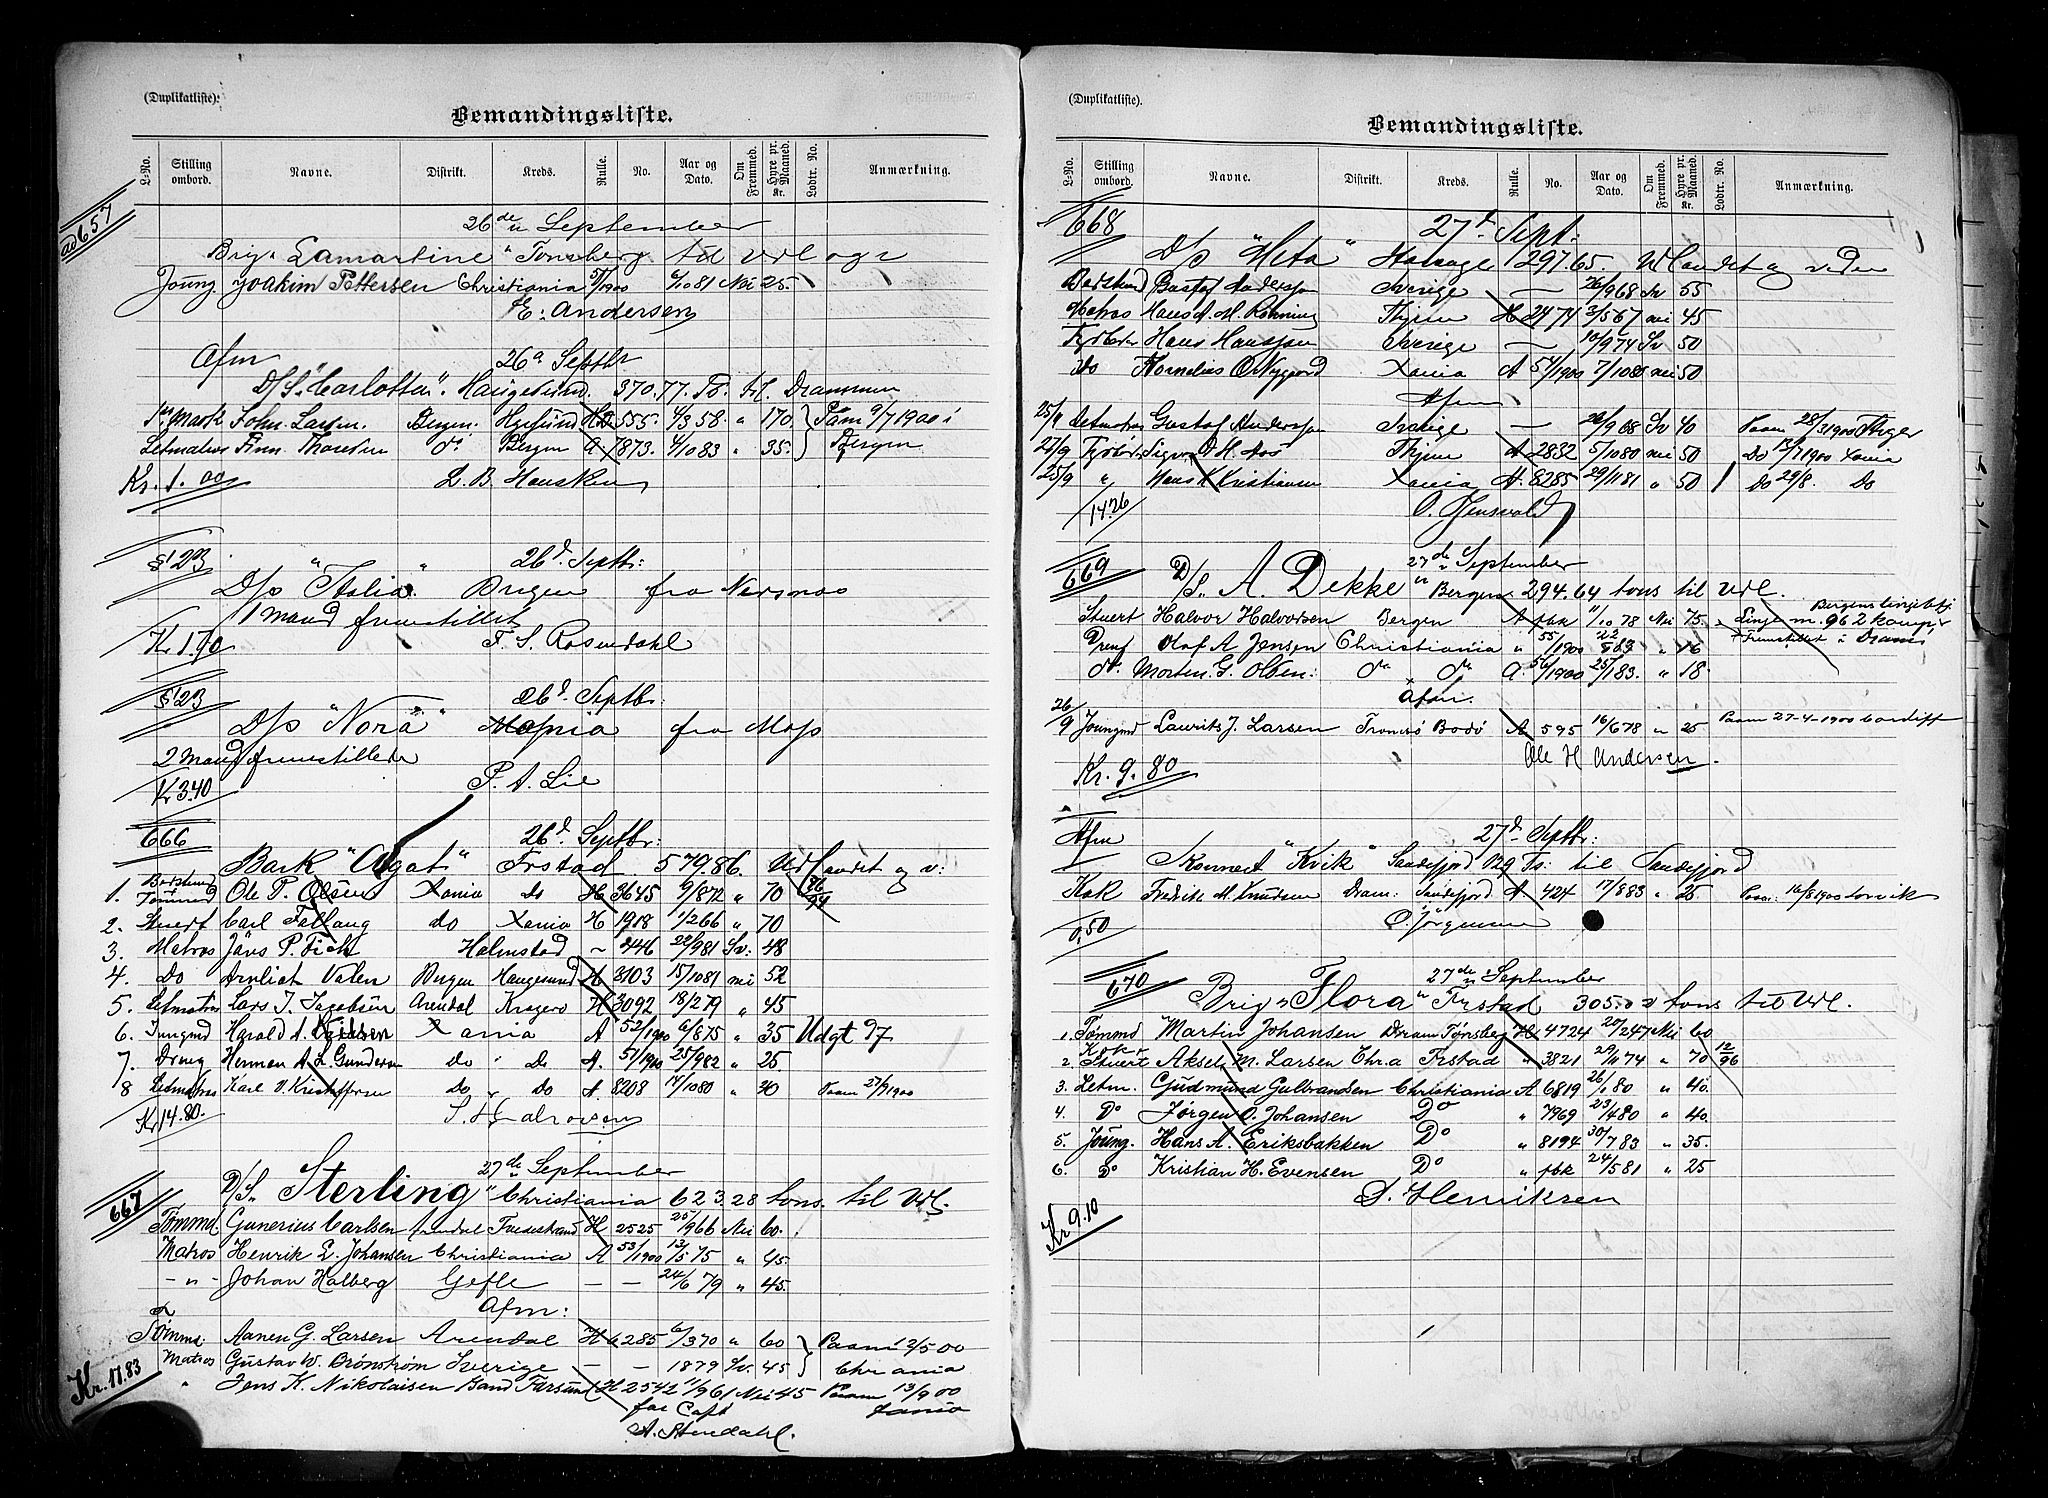 (Duplikatliste).
Bemandingsliste.
L-No. Stilling ombord. Navne. Distrikt. Kreds. Rulle. No. Aar og Dato. Om Fremmed. Hyre pr. Maaned. Kr. Lodtr. No. Anmærkning.
ad 657
26de September
Brig "Lamartine" Tønsberg til Udl og v
Joung Joakim Pettersen Christiania 57/1900 6/10 81 Nei 25.
E. Andersen
Afm 26d Septbr
D/S. "Carlotta". Haugesund. 370.77. To. til Drammen
John Larsen Bergen. Hgesund 555. 4/3 58 " 170 Paam 9/7 1900 i
Letmatros Finn Thoresen do Bergen A. 7873. 4/10 83 " 35. Bergen
Kr. 1.00 L. B. Hansken
§ 23 26d. Septbr:
D/s "Italia" Bergen fra Nersnæs
1 Mand fremstillet
Kr 1.70 F. S. Rosendahl
§ 23 26d. Septbr:
D/s "Nora" fra Moss
2 Mand fremstillede
Kr 3.40 P. A. Lie
666 26d. Septbr:
Bark "Agat" Frstad 579.86. Udlandet og v:
1. Baadsmd Tømmd Ole P. Olsen Xania Do H 3645 9/8 72 " 70 96/94
2. Stuert Carl Fallang do Xania H 1918 1/2 66 " 70
3. Matros Jäns P. Fich Halmstad - 446 22/9 81 Sv: 48
4. Do Arnliot Valen Bergen Haugesund H 3103 15/10 81 nei 52
5. Letmatros Lars J. Jacobsen Arendal Kragerø H 3092 18/2 79 " 45
6. Jungmd Harald A. Nielsen Xania A 52/1900 6/8 75 " 35 Udgt 97
7. Dreng Herman A. L. Gundersen do Do A. 57/1900 25/9 82 " 25
8 Letmatros Karl O Kristoffersen do Do A 8208 14/10 80 " 40 Paam 27/9 1900
Kr. 14.80.
667 27de September
D/S. "Sterling" Christiania 623.28 tons. til Udl.
Tømmd. Gunerius Carlsen Arendal Tvedestrand H 2525 25/9 66 Nei 60.
Matros Henrik E. Johansen Christiania A 53/1900 13/5 75 " 45.
-"- Johan Halberg Gefle - - 24/6 79 " 45.
Afm:
Tømmd. Aanen G. Larsen Arendal H 6285 6/3 70 " 60 Paam 12/5 00
Matros Gustav W. Brønstrøm Sverige - - 1879 Sv. 45 Chrania
" Jens K. Nikolaisen Sand Farsund H 2542 11/9 61 Nei 45 Paam 13/9 00
for Capt Xania
A. Stendahl.
Kr. 17.83
(Duplikatliste).
Bemandingsliste.
L-No. Stilling ombord. Navne. Distrikt. Kreds. Rulle. No. Aar og Dato. Om Fremmed. Hyre pr. Maaned. Kr. Lodtr. No. Anmærkning.
668 27d. Sept:
D/s "Heta" 1297.65. Udlandet og videre
Baadsmand Gustaf Andersson Sverige - 26/9 68 Sv 55
Matros Hans A. M. Rønning Thjem H 2474 3/5 67 nei 45
Fyrbøder Hans Hansson Sverige - 10/9 74 Sv 50
Do Kornelius O. Nygård Xania A 54/1900 7/10 80 nei 50
Afm
25/9 Letmatros Gustaf Andersson Sverige - 26/9 68 Sv 40 Paam 28/3 1900
27/9 Fyrbdr. Thjem A 2832 5/10 80 nei 50 Do 13/7 1900 Xania
25/9 " Hans K Kristiansen Xania A. 8285 29/11 81 " 50 Do 29/8. Do
14.26
669 27de September
D/S. "A. Dekke" Bergen 294.64 tons til Udl.
Stuert Halvor Halvorsen Bergen A fbk 11/10 78 Nei 75.
Dreng Olaf A Jensen Christiania " 55/1900 " 16
do. Morten G. Olsen: do do A. 56/1900 25/1 83. " 18.
Afm.
26/9 Joungmd Laurits J. Larsen Tromsø Bodø A 595 16/6 78 " 25 Paam 27-4-1900 Cardiff
Ole H Andersen.
Kr. 9.80
Afm 27d Septbr:
Skonnert "Kvik" Sandefjord 119 Ts: til Sandefjord
Kok Fredrik M. Knudsen Dram: Sandefjord A 424 17/8 83 " 25. Paam: 16/8 1900 Larvik
0,50 O. Jørgensen
670 27de September
Brig "Flora" Frstad 305.02 tons til Udl.
1. Tømmd Martin Johansen Dram Tønsberg H 4724 20/2 47 Nei 60
2. Kok & Stuert Aksel M. Larsen Chr.a Frstad " 3821 29/11 74 " 70 12/96
3. Letm. Gudmund Gulbrandsen Christiania A 6819 26/1 80 " 40.
4. Do Jørgen O. Johansen Do " 7969 23/4 80 " 40.
5. Joung. Hans A. Eriksbakken Do " 8194 30/7 83 " 35.
6. Do Kristian H. Evensen Do " fbk 24/5 81 " 25
Kr 9.10 D. Henriksen